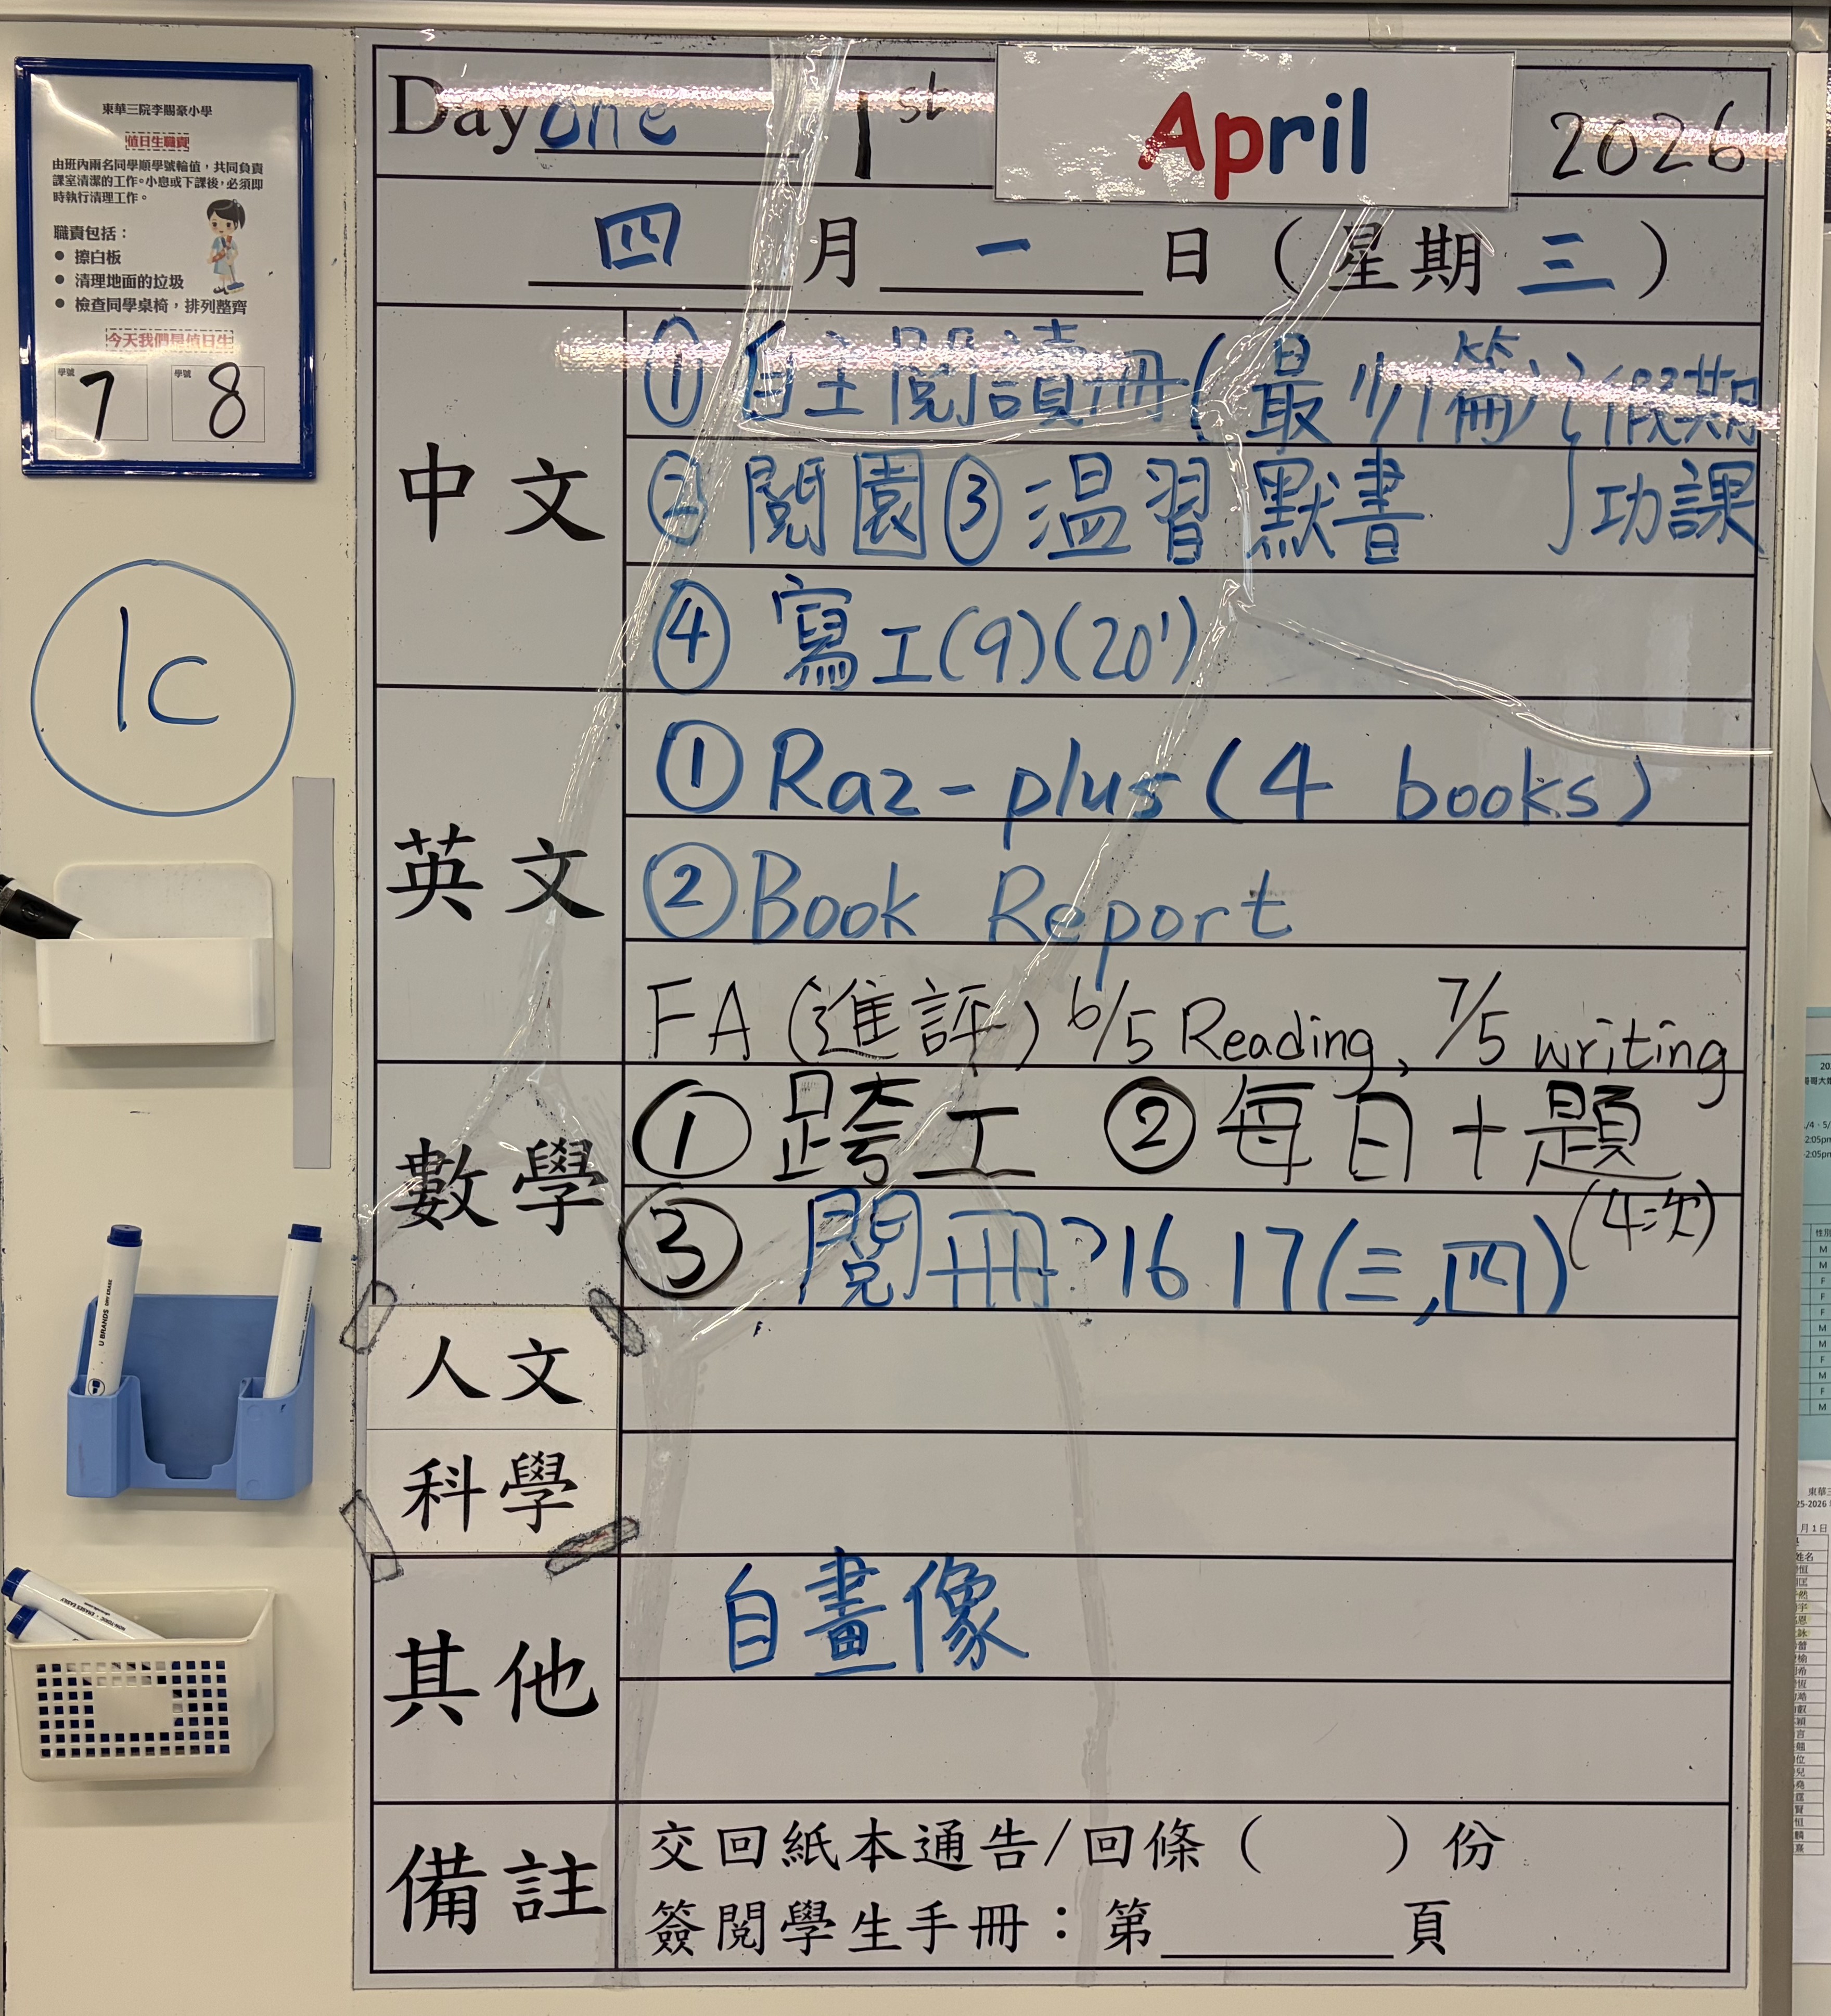 東華三院李賜豪小學
值日生職責
由班內兩名同學順學號輪值，共同負責
課室清潔的工作。小息或下課後，必須即
時執行清理工作。
職責包括：
• 擦白板
• 清理地面的垃圾
• 檢查同學桌椅，排列整齊
今天我們是值日生
學號 7 學號 8
1C
Day one 1st April 2026
四月一日（星期三）
中文
① 自主閱讀冊(最少1篇) 假期
② 閱園 ③ 温習默書 功課
④ 寫工(9)(20')
英文
① Raz-plus (4 books)
② Book Report
FA (進評) 6/5 Reading, 7/5 writing
數學
① 跨工 ② 每日十題
(4次)
③ 閱冊 P16 17(三,四)
人文
科學
其他
自畫像
備註
交回紙本通告/回條（ ）份
簽閱學生手冊：第______頁